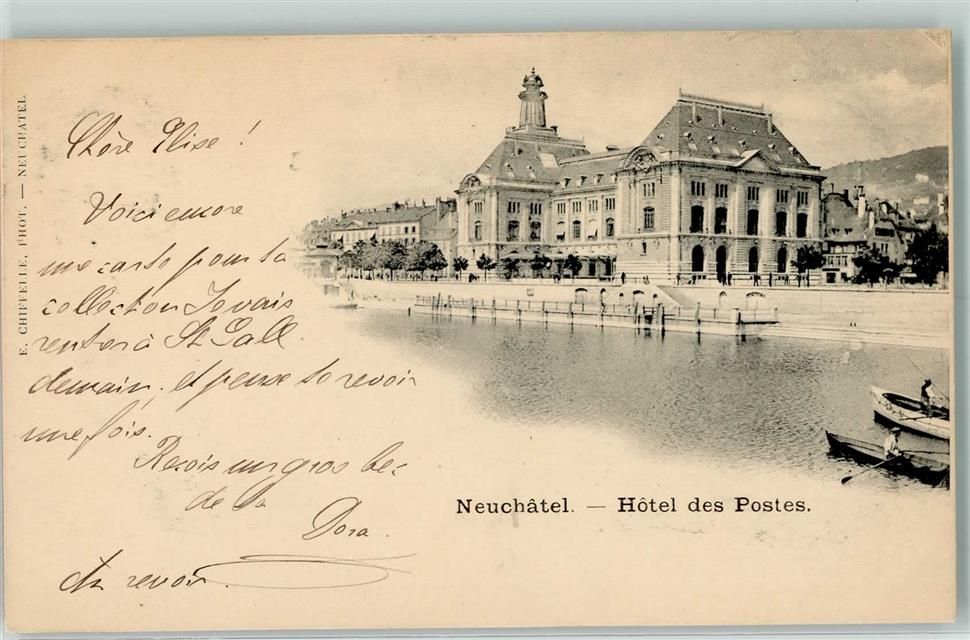 E. CHIFFELLE, PHOT. — NEUCHATEL
Chère Elise !
Voici encore
une carte pour ta
collection Je vais
rentrer à St Gall
demain, et pense te revoir
une fois.
Reçois un gros be-
de ta
Dora.
Au revoir.
Neuchâtel. — Hôtel des Postes.